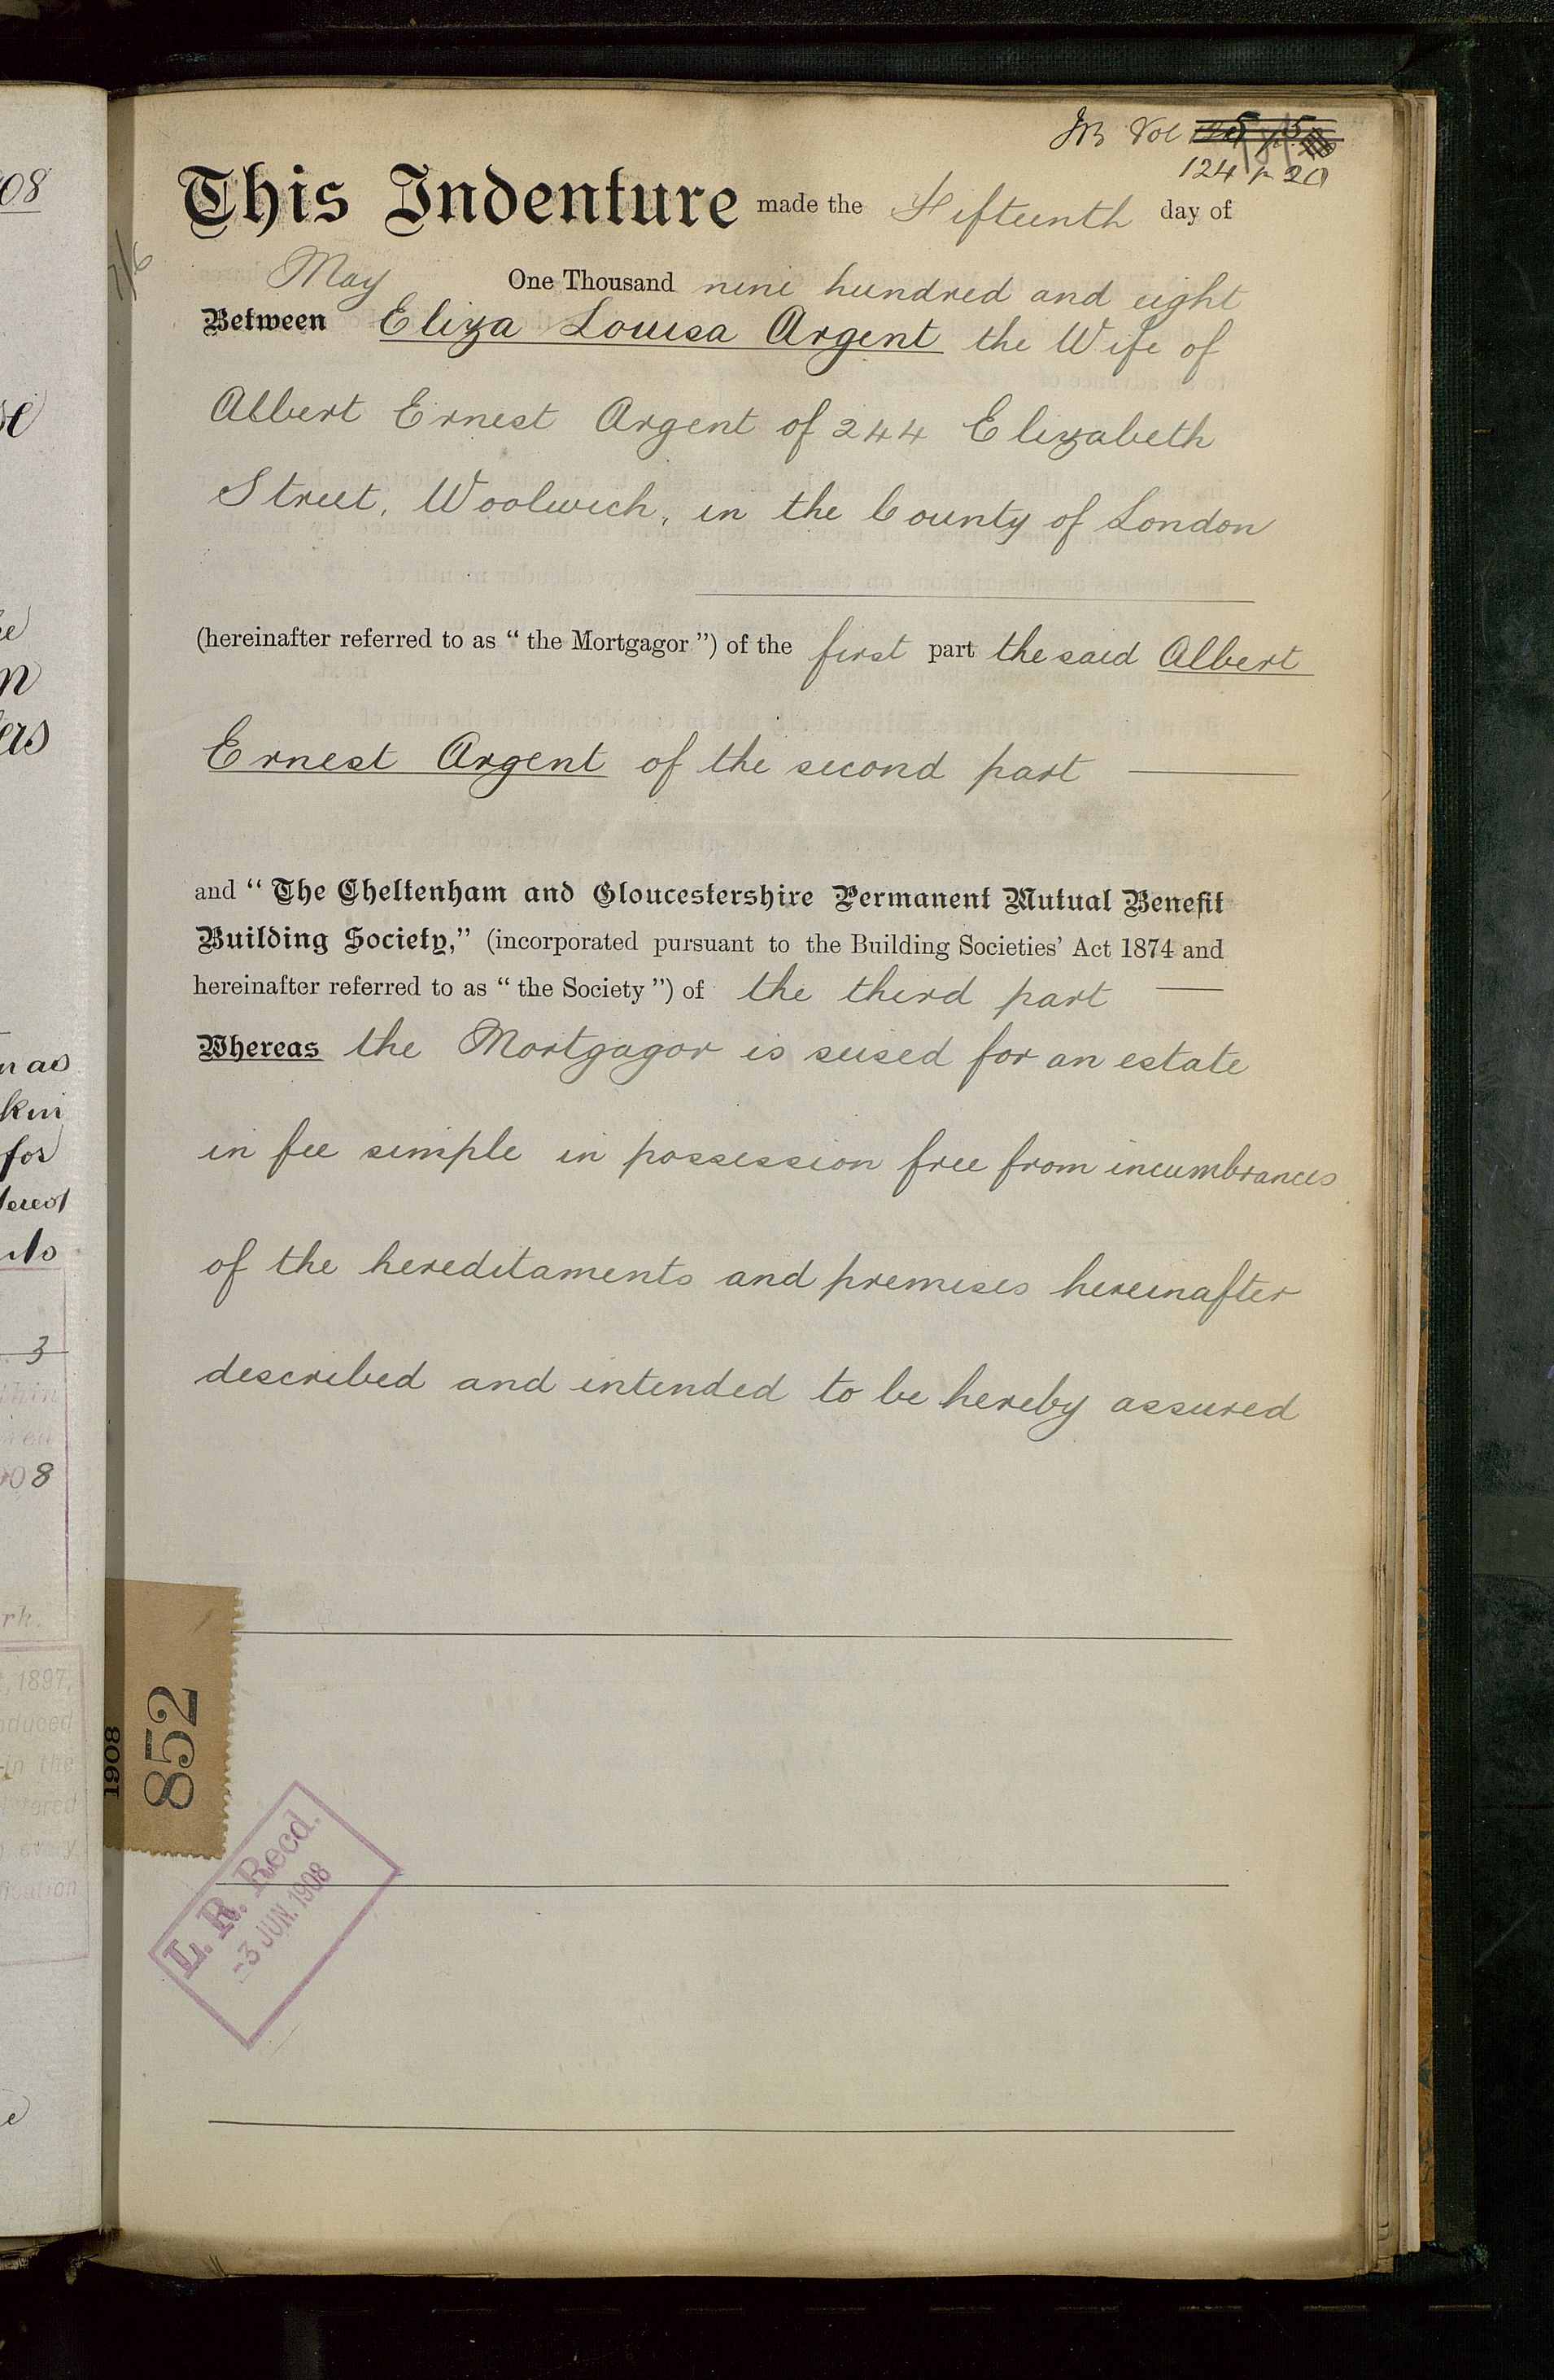 JB Vol
124 p 20
This Indenture made the Fifteenth day of
May One Thousand nine hundred and eight
Between Eliza Louisa Argent the Wife of
Albert Ernest Argent of 244 Elizabeth
Street, Woolwich, in the County of London
(hereinafter referred to as “ the Mortgagor ”) of the first part the said Albert
Ernest Argent of the second part
and “ The Cheltenham and Gloucestershire Permanent Mutual Benefit
Building Society,” (incorporated pursuant to the Building Societies’ Act 1874 and
hereinafter referred to as “ the Society ”) of the third part
Whereas the Mortgagor is seised for an estate
in fee simple in possession free from incumbrances
of the hereditaments and premises hereinafter
described and intended to be hereby assured
1908
852
L. R. Recd.
-3 JUN. 1908
08
for
3
08
1897,
in the